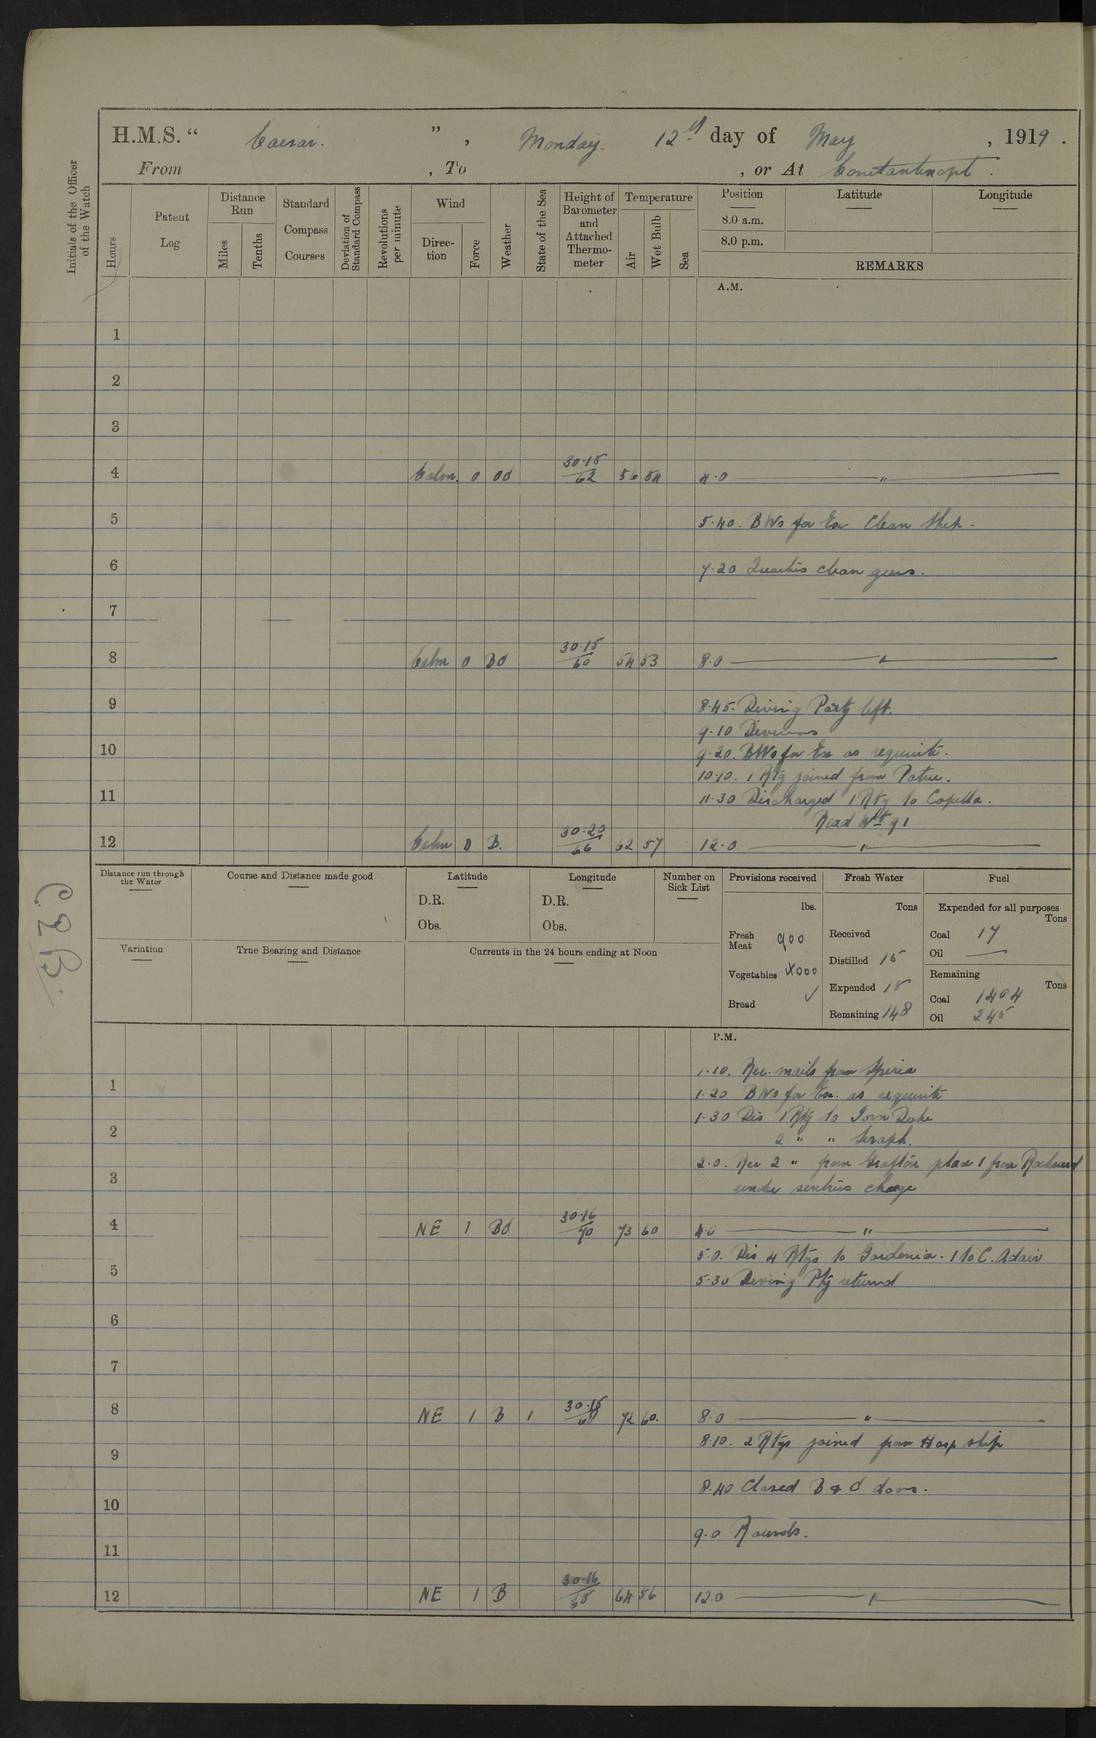 H.M.S. " Caesar. ", Monday. 12th day of May, 1919.
From , To , or At Constantinople.
Initials of the Officer of the Watch
Hours
Patent Log
Distance Run
Miles
Tenths
Standard Compass Courses
Deviation of Standard Compass
Revolutions per minute
Wind
Direction
Force
Weather
State of the Sea
Height of Barometer and Attached Thermometer
Temperature
Air
Wet Bulb
Sea
Position
Latitude
Longitude
8.0 a.m.
8.0 p.m.
REMARKS
A.M.
1
2
3
4 Calm. 0 Od 30.15/62 56 54 4.0 "
5 5.40. BWs for Ex Clean Ship.
6 7.20 Quarters clean guns.
7
8 Calm 0 Bd 30.15/60 54 53 8.0 "
9 8.45. Diving Party left.
9.10 Divisions
10 9.20. BWs for Ex as requisite.
10.10. 1 Rtg joined from
11 11.30 Discharged 1 Rtg to Capella.
Read Wt
12 Calm 0 B. 30.20/66 62 57 12.0 "
Distance run through the Water
Course and Distance made good
Latitude
D.R.
Obs.
Longitude
D.R.
Obs.
Number on Sick List
Provisions received
lbs.
Fresh Meat 900
Vegetables X000
Bread ✓
Fresh Water
Tons
Received
Distilled 15
Expended 15
Remaining 148
Fuel
Expended for all purposes
Tons
Coal 17
Oil —
Remaining
Tons
Coal 1404
Oil 245
Variation
True Bearing and Distance
Currents in the 24 hours ending at Noon
P.M.
1.10. Rec. mails from Spiria
1 1.20 BWs for Ex. as requisite
1.30 Dis 1 Rtg to Iron Duke
2 2 " " Seraph.
2.0. Rec 2 " from Grafton place 1 from
3 under sentries charge
4 NE 1 Bd 30.16/70 73 60 4.0 "
5.0. Dis 4 Rtgs to Gardenia. 1 to C. Adair
5 5.30 Diving Pty returned
6
7
8 NE 1 B 1 30.15/68 72 60. 8.0 "
8.10. 2 Rtgs joined from Hosp ship
9
8.40 Closed B & d doors.
10
9.0 Rounds.
11
12 NE 1 B 30.16/68 64 56 12.0 "